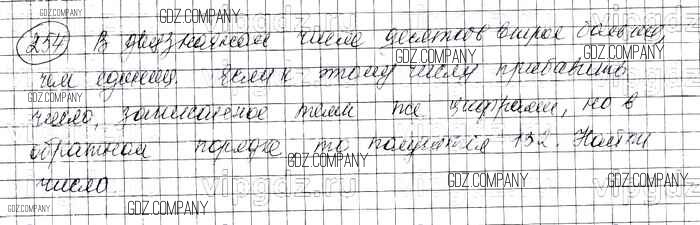 254 В двузначном числе десятков втрое больше,
чем единиц. Если к этому числу прибавить
число, записанное теми же цифрами, но в
обратном порядке то получится 132. Найти
число.
GDZ.COMPANY
GDZ.COMPANY
GDZ.COMPANY
GDZ.COMPANY
GDZ.COMPANY
GDZ.COMPANY
GDZ.COMPANY
GDZ.COMPANY
GDZ.COMPANY
GDZ.COMPANY
vipgdz.ru